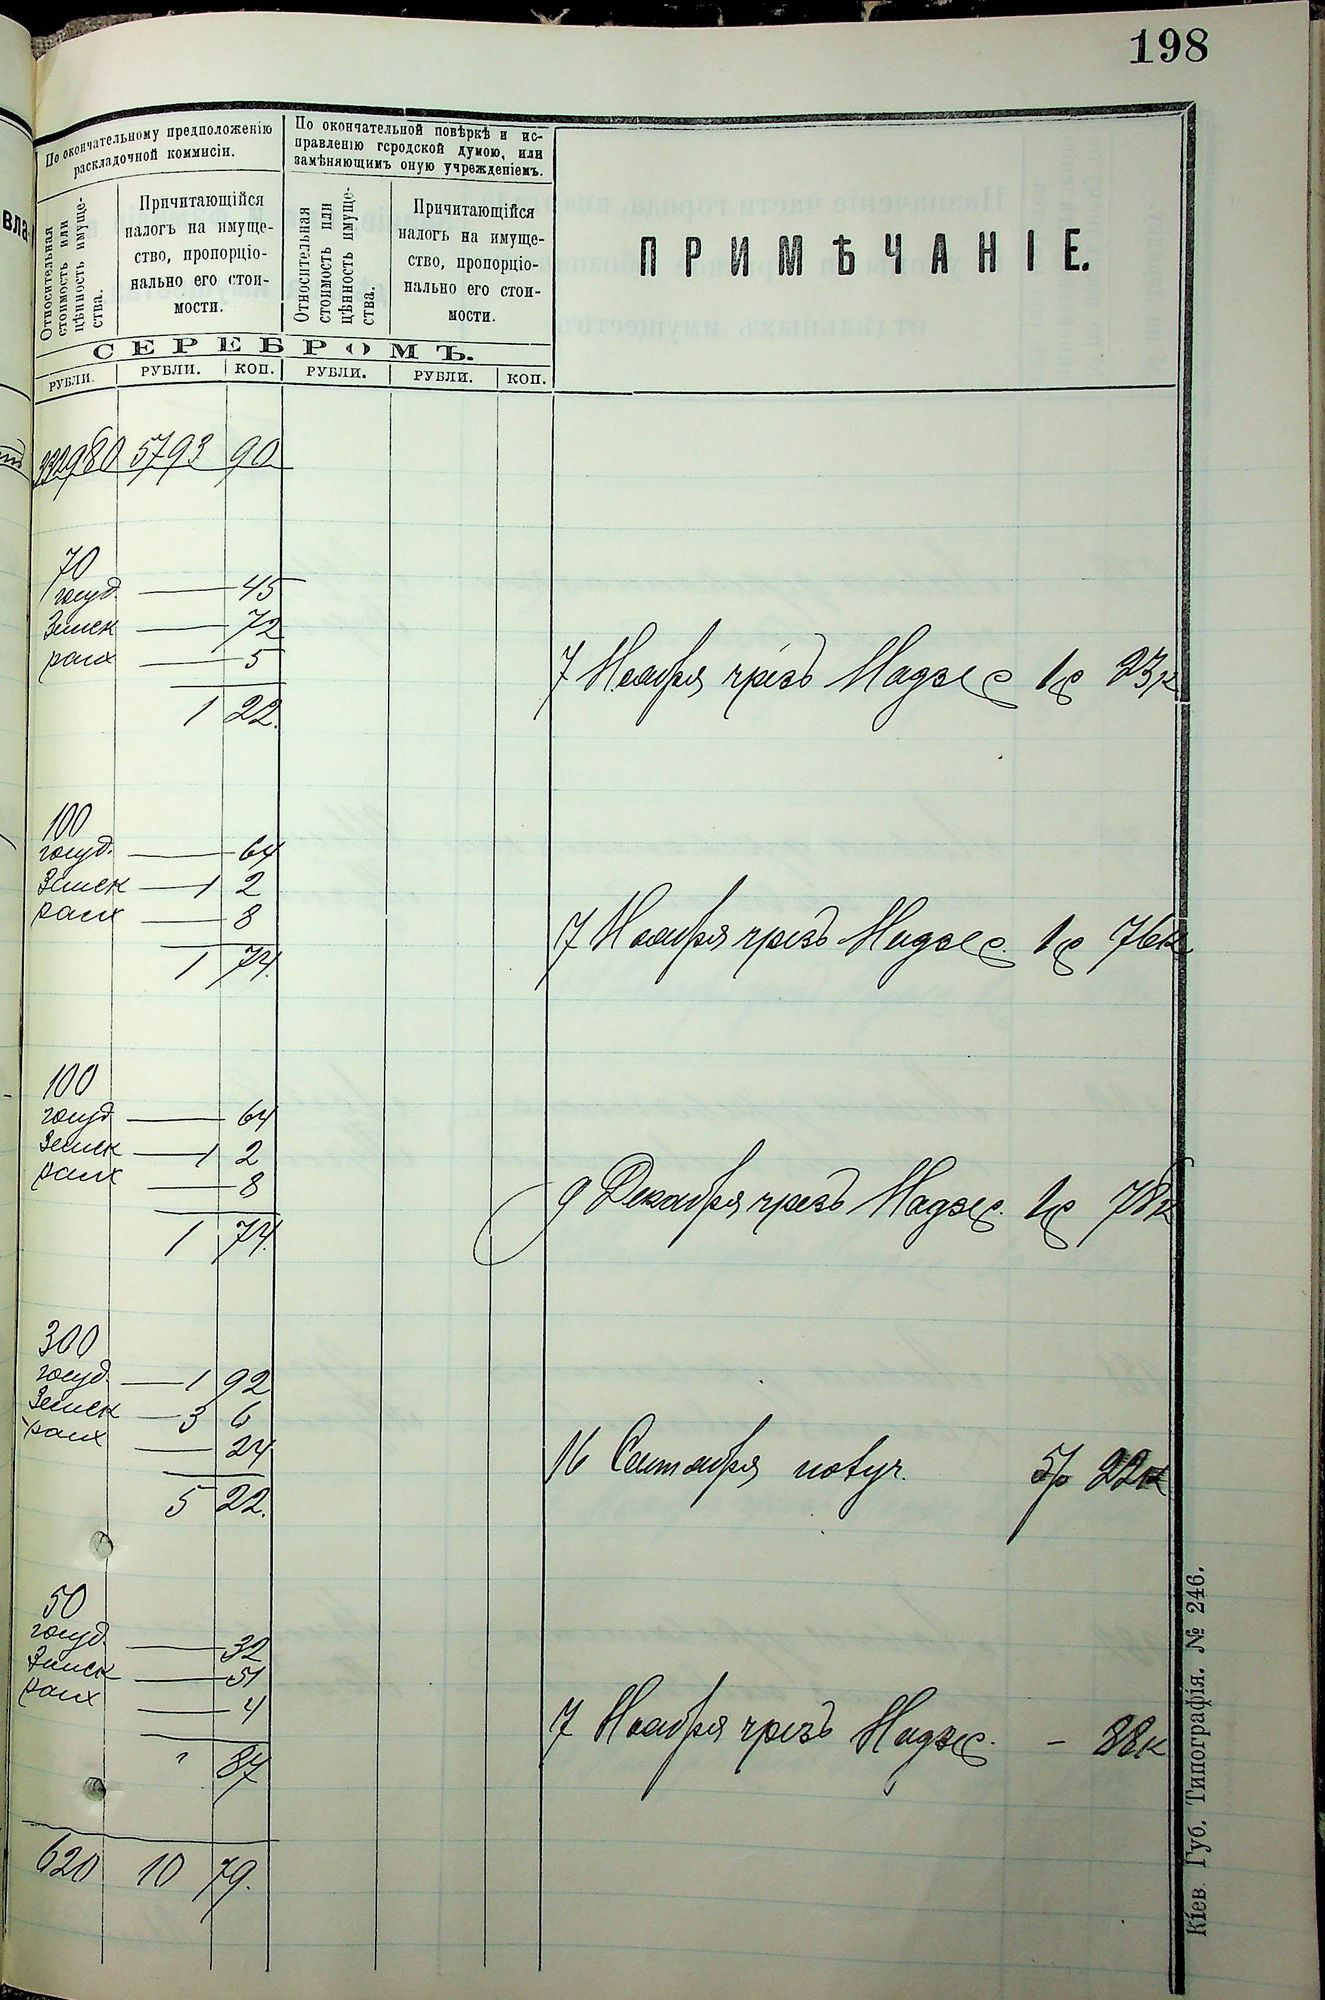 198
По окончательному предположенію
раскладочной коммисіи.
По окончательной повѣркѣ и ис-
правленію городской думою, или
замѣняющимъ оную учрежденіемъ.
Относительная
стоимость или
цѣнность имуще-
ства.
Причитающійся
налогъ на имуще-
ство, пропорціо-
нально его стои-
мости.
Относительная
стоимость или
цѣнность имуще-
ства.
Причитающійся
налогъ на имуще-
ство, пропорціо-
нально его стои-
мости.
ПРИМѢЧАНІЕ.
вла
СЕРЕБРОМЪ.
РУБЛИ. РУБЛИ. КОП. РУБЛИ. РУБЛИ. КОП.
332980 5793 90
70
госуд. — 45
Земск — 72
— 5
1 22.
7 Ноября чрезъ Надз 1р 23к
100
госуд. — 64
Земск — 1 2
— 8
1 74.
7 Ноября чрезъ Надз. 1р 76к
100
госуд — 64
Земск — 1 2
— 8
1 74.
9 Декабря чрезъ Надз. 1р 78к
300
госуд. — 1 92
Земск — 3 6
— 24
5 22.
16 Сентября 5р 22к
50
госуд. — 32
Земск — 51
— 4
" 87
7 Ноября чрезъ Надз. — 88к
620 10 79.
Кіев. Губ. Типографія. № 246.